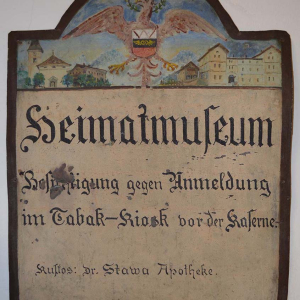 Heimatmuſeum
Beſichtigung gegen Anmeldung
im Tabak-Kiosk vor der Kaſerne.
Kuſtos: Dr. Stawa Apotheke.